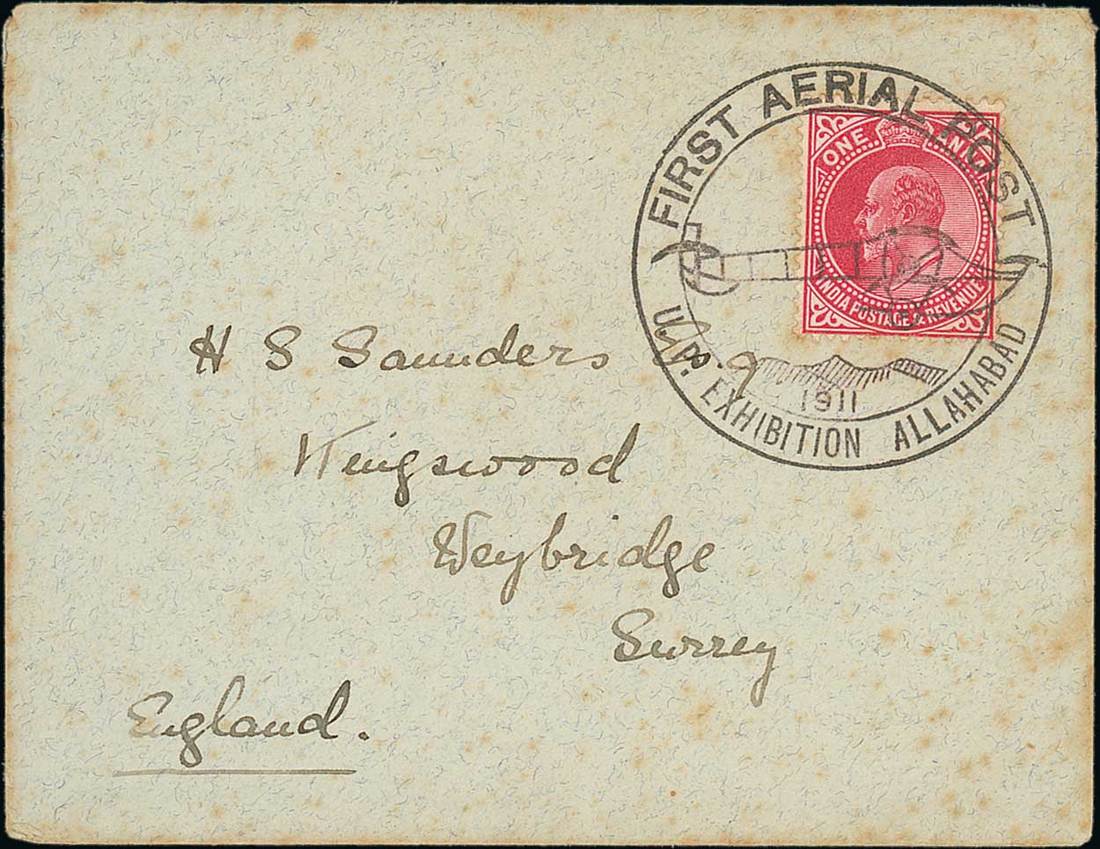 FIRST AERIAL POST
ONE ANNA
INDIA POSTAGE & REVENUE
1911
U.P. EXHIBITION ALLAHABAD
H S Saunders Esq
Kingswood
Weybridge
Surrey
England.